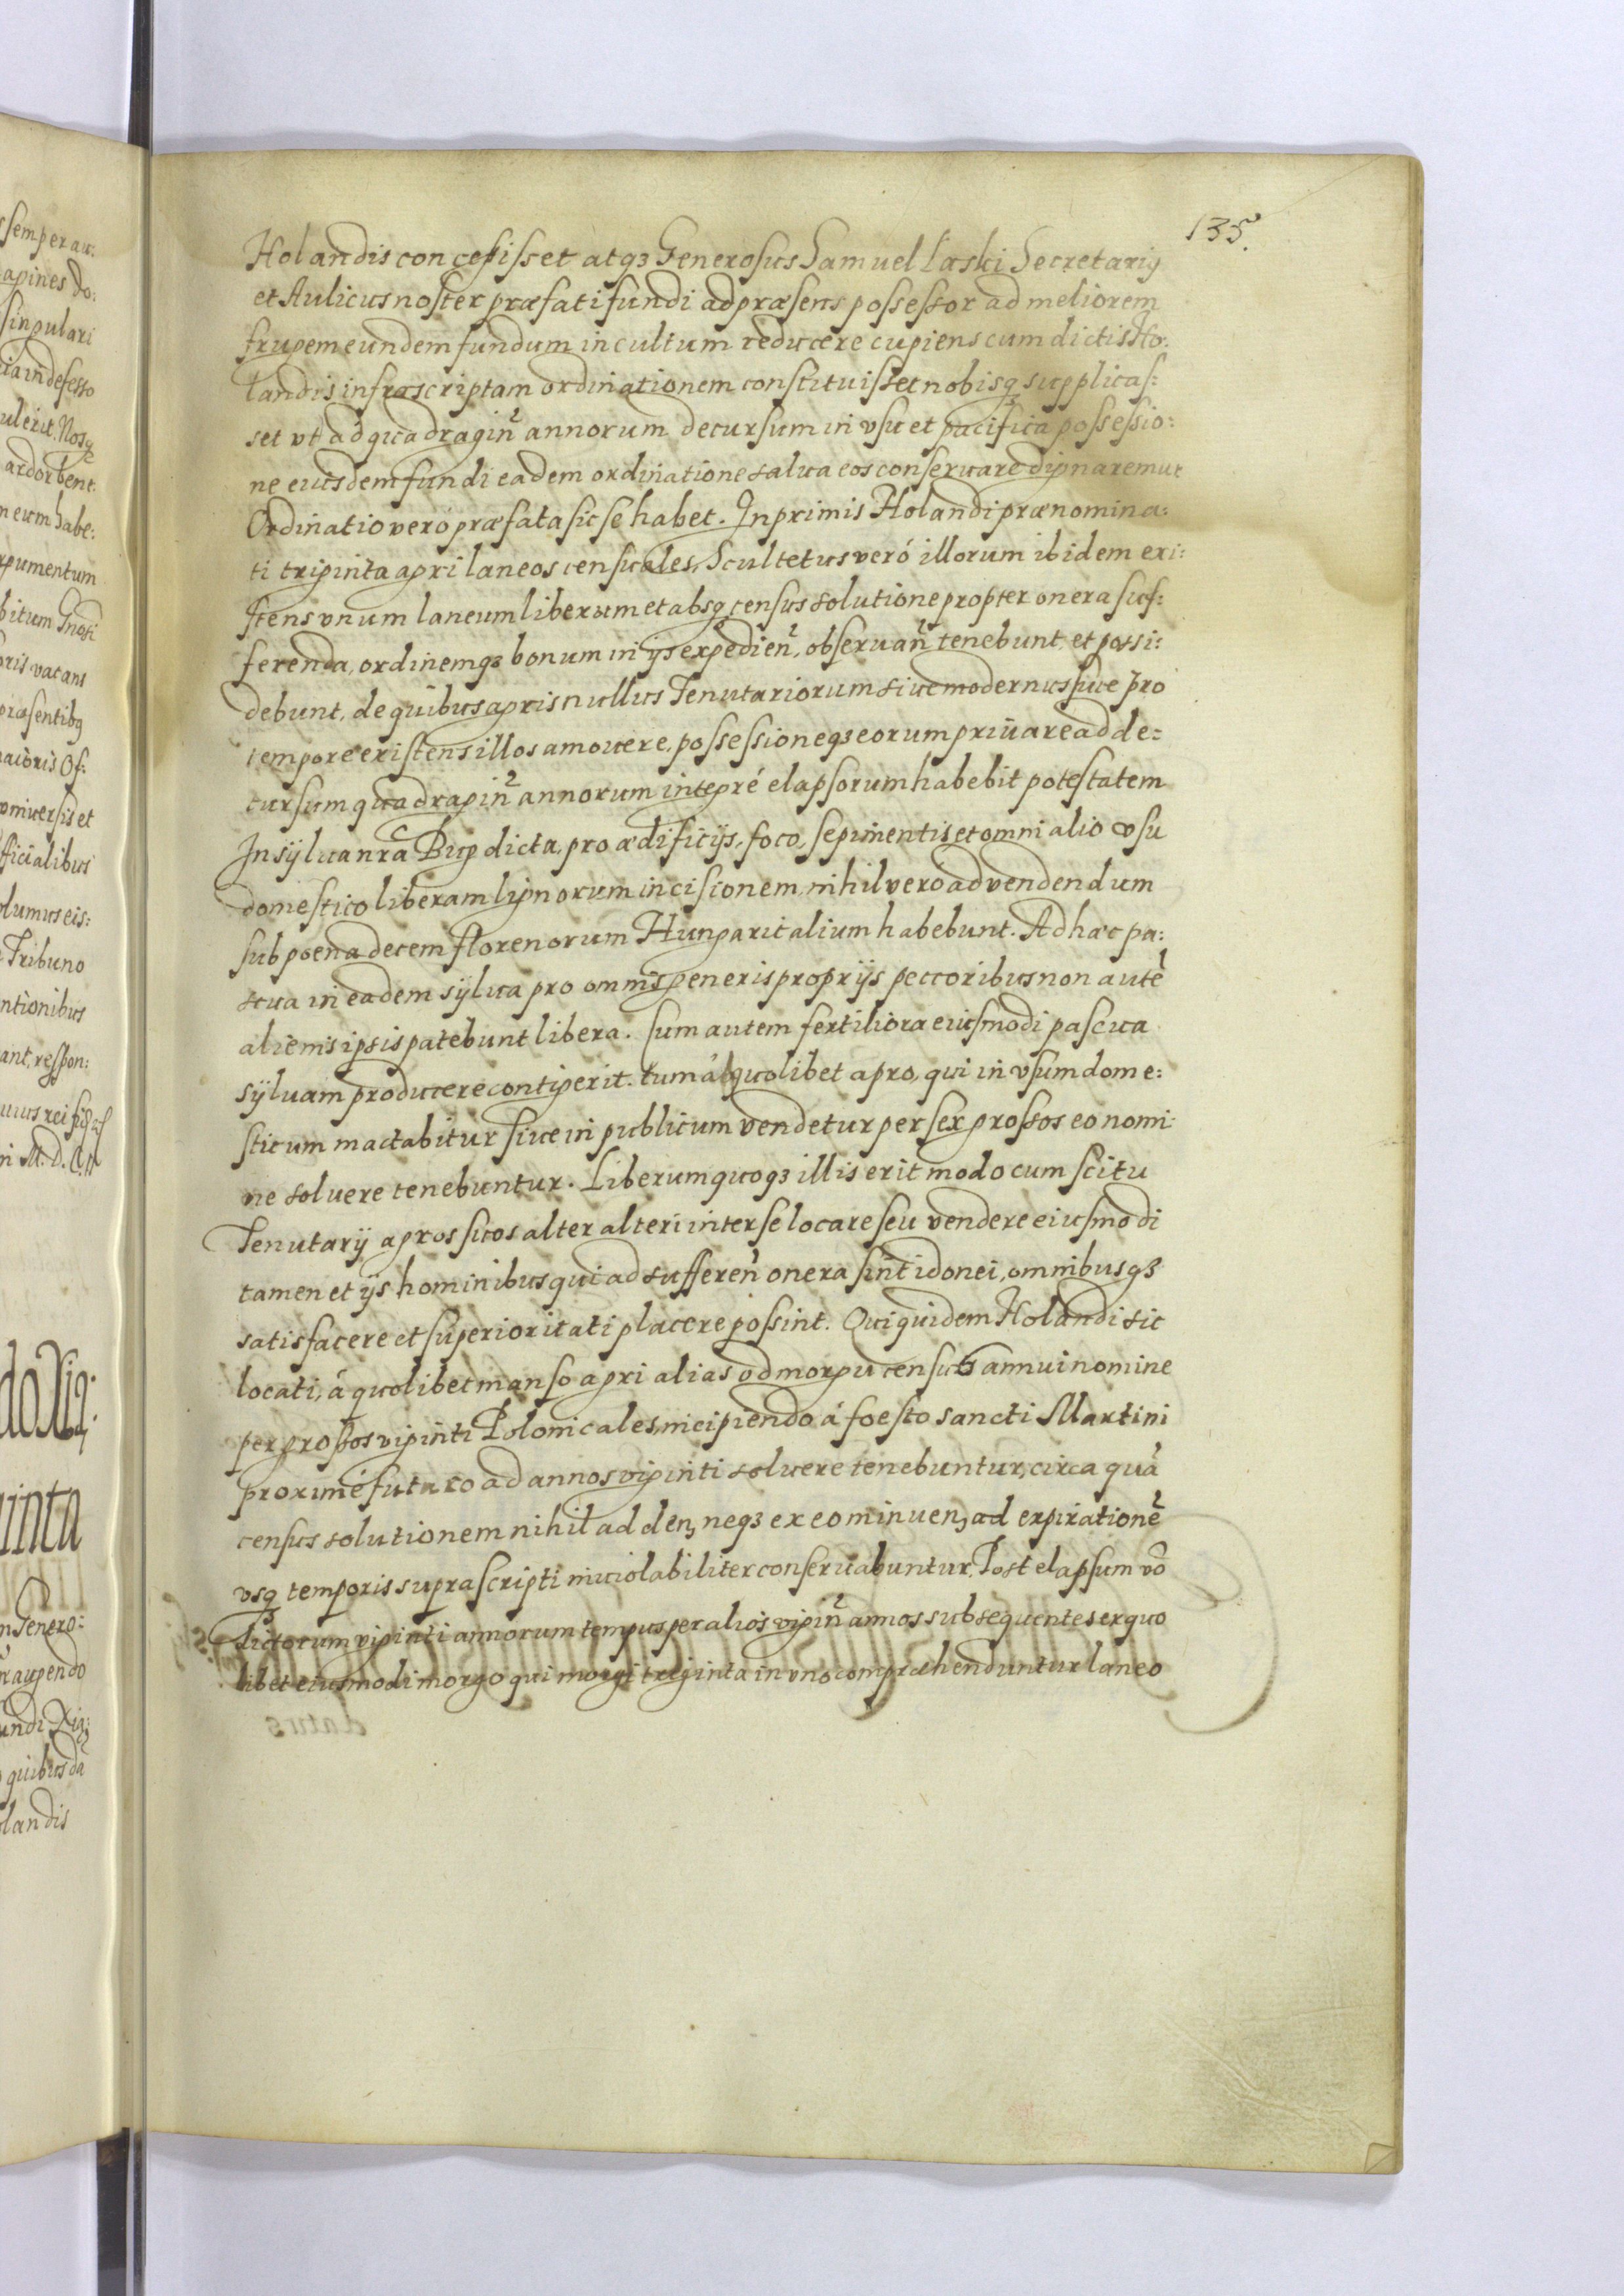 135.
Holandis concessisset atq3 Generosus Samuel Laski Secretariꝯ
et Aulicus noster præfati fundi ad præsens possessor ad meliorem
frugem eundem fundum incultum reducere cupiens cum dictis Ho:
landis infrascriptam ordinationem constituisset nobisq3 supplicas:
set vt ad quadragin̄ annorum decursum in vsu et pacifica possessio:
ne eiusdem fundi eadem ordinatione salua eos conseruare dignaremur
Ordinatio veró præfata sic se habet. Inprimis Holandi prænomina:
ti triginta agri laneos censuales, Scultetus veró illorum ibidem exi:
stens vnum laneum liberum et absq3 census solutione propter onera suf:
ferenda, ordinemq3 bonum in ijs expedien̄, obseruan̄ tenebunt, et possi:
debunt, de quibus agris nullus Tenutariorum siue modernus siue pro
tempore existens illos amouere, possessioneq3 eorum priuare ad de:
cursum quadragin̄ annorum integré elapsorum habebit potestatem
In sylua nr̄a Bug dicta, pro ædificijs, foco, sepimentis et omni alio vsu
domestico liberam lignorum incisionem, nihil vero ad vendendum
sub poena decem florenorum Hungaricalium habebunt. Ad hæc pa:
scua in eadem sylua pro omnis generis proprijs peccoribus non autē
alienis ipsis patebunt libera. Cum autem fertiliora eiusmodi pascua
syluam producere contigerit. tum á quolibet apro, qui in vsum dome:
sticum mactabitur siue in publicum vendetur per sex grossos eo nomi:
ne soluere tenebuntur. Liberum quoq3 illis erit modo cum scitu
Tenutarij agros suos alter alteri inter se locare seu vendere eiusmodi
tamen et ijs hominibus qui ad sufferen̄ onera sint idonei, omnibusq3
satisfacere et superioritati placere possint. Qui quidem Holandi sic
locati, á quolibet manso agri alias od morgu census annui nomine
per grossos viginti Polonicales, incipiendo á foesto sancti Martini
proximé futuro ad annos viginti soluere tenebuntur, circa quā
census solutionem nihil adden, neq3 ex eo minuen, ad expirationē
vsq3 temporis suprascripti inuiolabiliter conseruabuntur. Post elapsum vō
dictorum viginti annorum tempus per alios vigin̄ annos subsequentes ex quo
libet eiusmodi morgo qui morgi triginta in vno compræhenduntur laneo